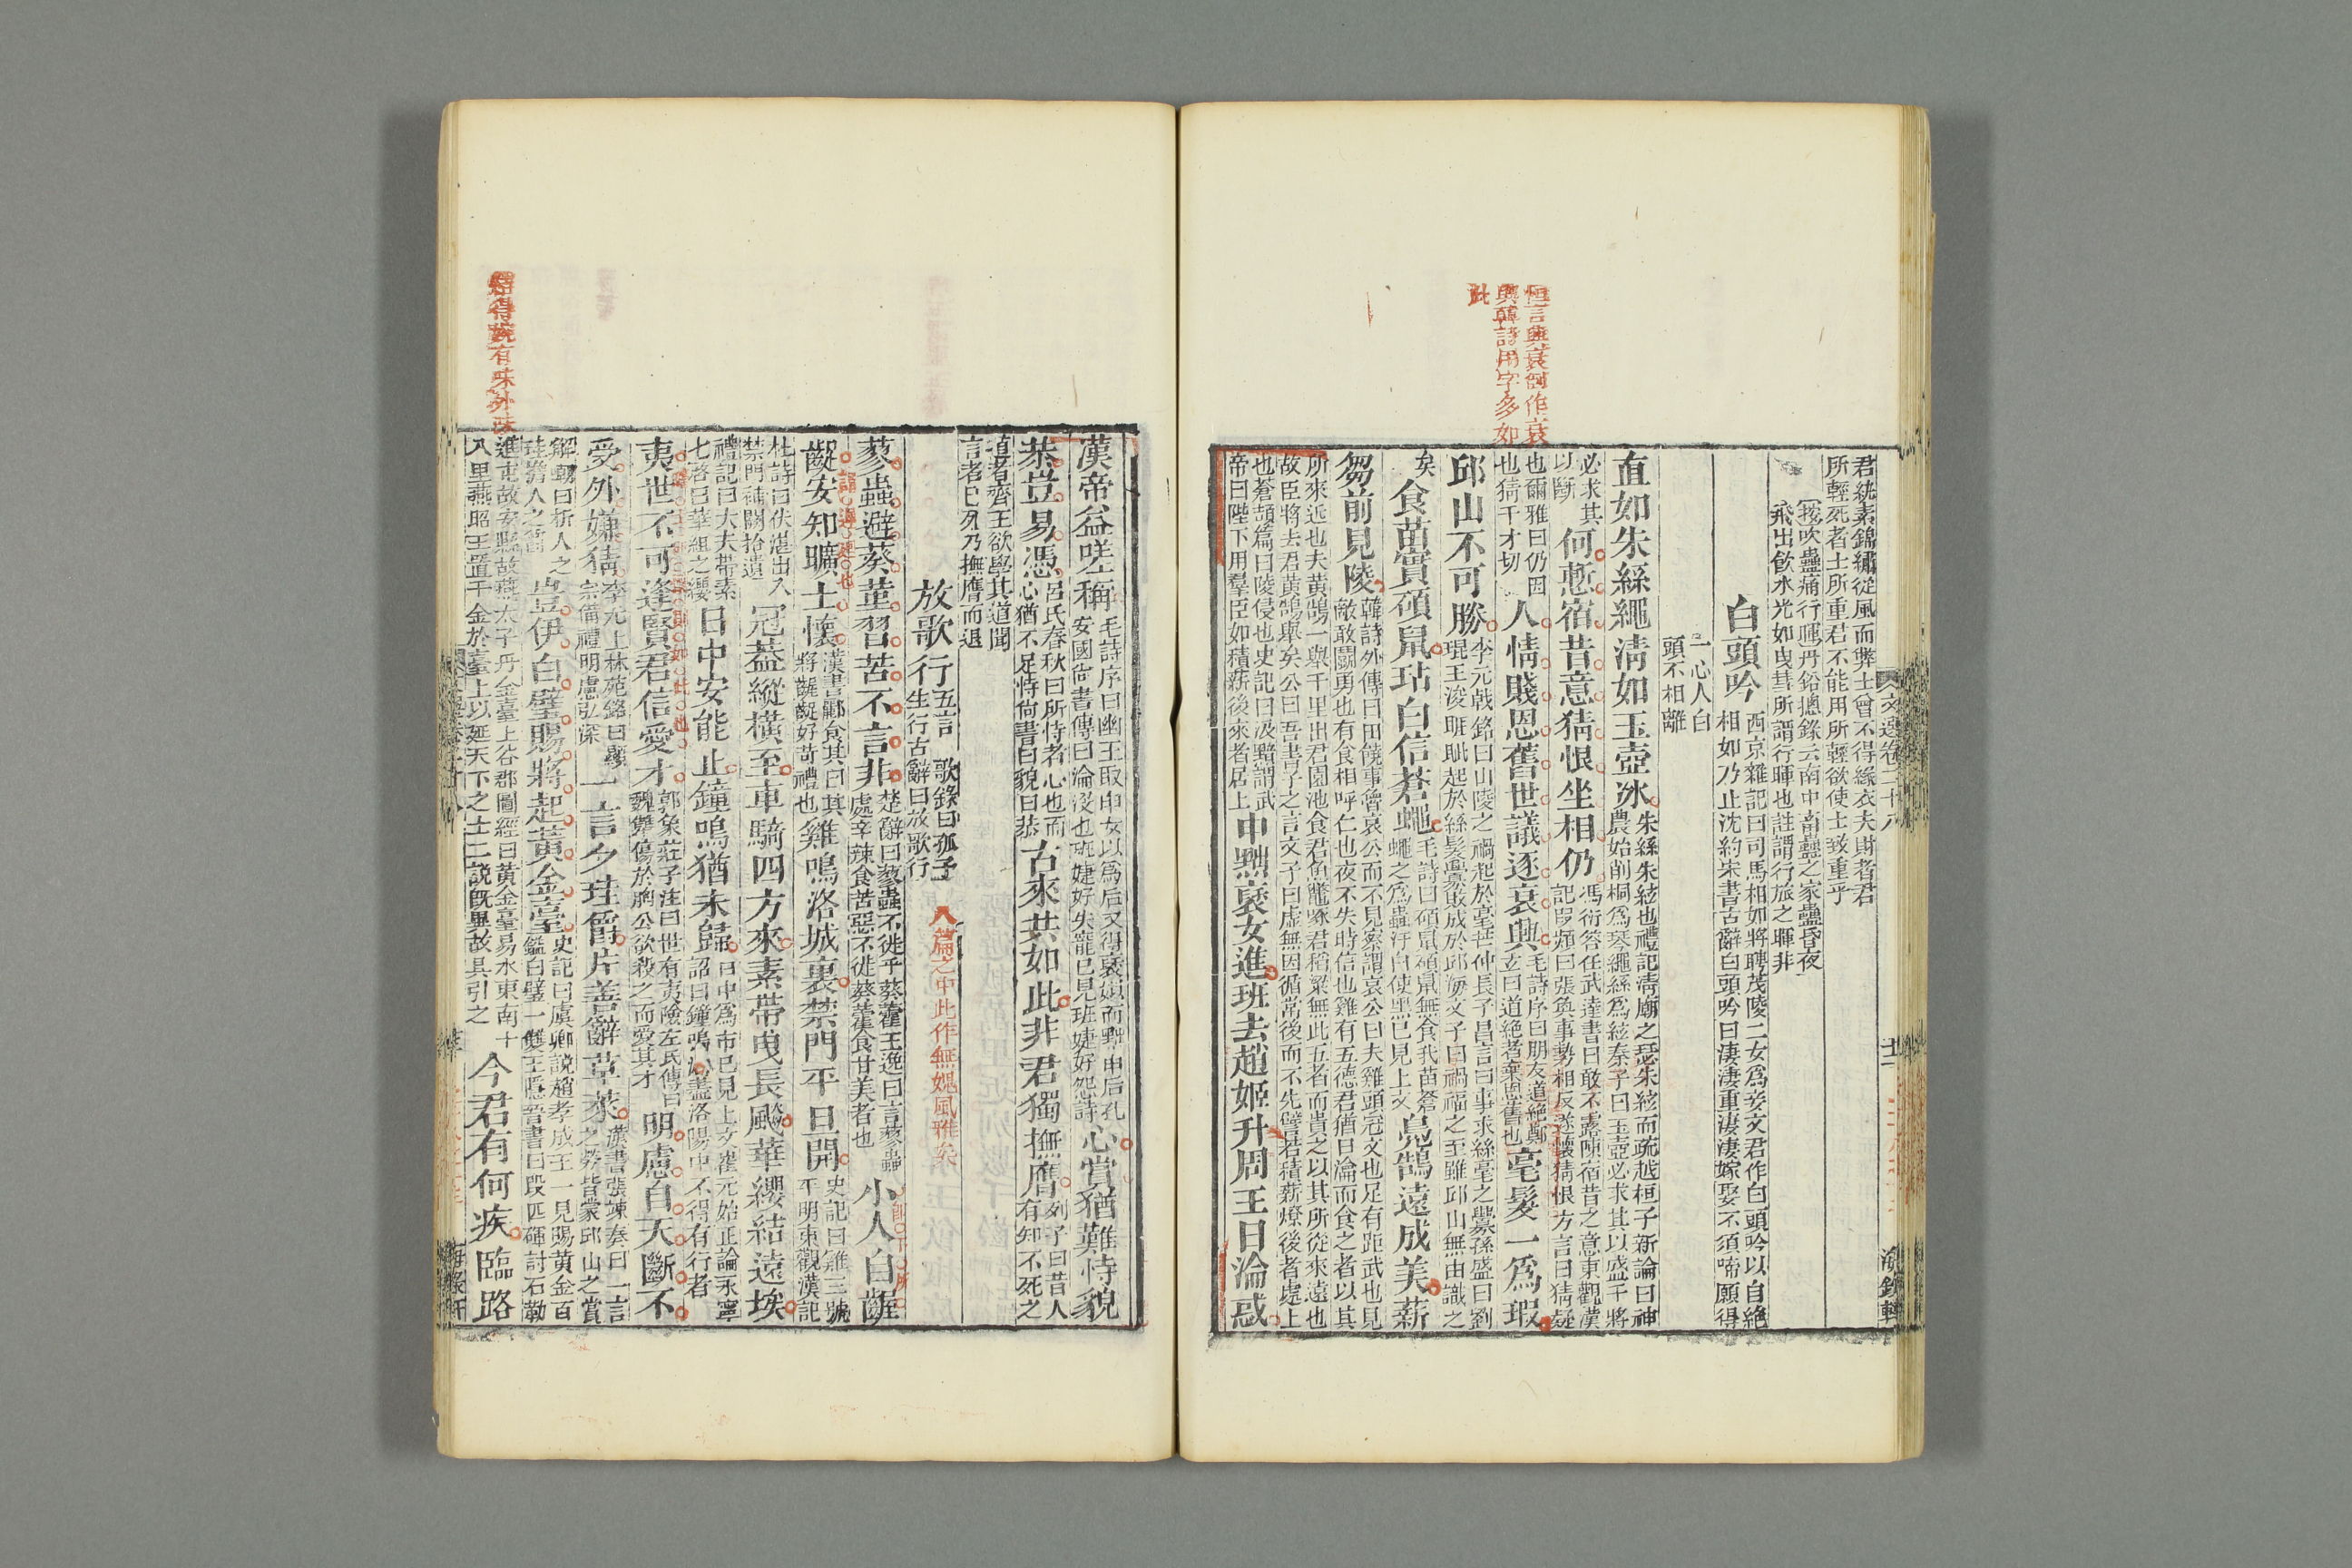 恒言興衰倒作衰
興韓詩用字多如
此
君紈素錦繡從風而弊士曾不得緣衣夫財者君
所輕死者士所重君不能用所輕欲使士致重乎
飛出飲水光如曳彗所謂行暉也註謂行旅之暉非
白頭吟
西京雜記曰司馬相如將聘茂陵一女為妾文君作白頭吟以自絕
相如乃止沈約宋書古辭白頭吟曰淒淒重淒淒嫁娶不須啼願得
一心人白
頭不相離
直如朱絲繩清如玉壺冰
朱絲朱絃也禮記清廟之瑟朱絃而疏越桓子新論曰神
農始削桐為琴繩絲為絃秦子曰玉壺必求其以盛干將
必求其
以斷
何慙宿昔意猜恨坐相仍
馮衍答任武達書曰敢不露陳宿昔之意東觀漢
記段熲曰張奐事勢相反遂懷猜恨方言曰猜疑
也爾雅曰仍因
也猜千才切
人情賤恩舊世議逐衰興
毛詩序曰朋友道絕鄭
玄曰道絕者棄恩舊也
毫髮一為瑕
邱山不可勝
李元戟銘曰山陵之禍起於毫芒仲長子昌言曰事求絲毫之釁孫盛曰劉
琨王浚睚眦起於絲髮釁敗成於邱海文子曰禍福之至雖邱山無由識之
矣
食苗實碩鼠玷白信蒼蠅
毛詩曰碩鼠碩鼠無食我苗蒼
蠅之為蟲汙白使黑已見上文
鳧鵠遠成美薪
芻前見陵
韓詩外傳曰田饒事魯哀公而不見察謂哀公曰夫雞頭冠文也足有距武也見
敵敢鬬勇也有食相呼仁也夜不失時信也雞有五德君猶日瀹而食之者以其
所來近也夫黃鵠一舉千里出君園池食君魚鼈啄君稻粱無此五者而貴之以其所從來遠也
故臣將去君黃鵠舉矣公曰吾書子之言文子曰虛無因循常後而不先譬若積薪燎後者處上
也蒼頡篇曰陵侵也史記曰汲黯謂武
帝曰陛下用羣臣如積薪後來者居上
申黜褒女進班去趙姬升周王日淪惑
文選卷二十八
漢帝益嗟稱
毛詩序曰幽王取申女以為后又得褒姒而黜申后孔
安國尚書傳曰淪沒也班婕妤失寵已見班婕妤怨詩
心賞猶難恃貌
恭豈易憑
呂氏春秋曰所恃者心也而
心猶不足恃尚書曰貌曰恭
古來共如此非君獨撫膺
列子曰昔人
有知不死之
道者齊王欲學其道聞
言者已死乃撫膺而退
放歌行
五言 歌錄曰孤子
生行古辭曰放歌行
八篇之中此作無媿風雅矣
蓼蟲避葵堇習苦不言非
楚辭曰蓼蟲不徙乎葵藿王逸曰言蓼蟲
處辛辣食苦惡不徙葵藿食甘美者也
小人自齷
齪安知曠士懷
漢書酈食其曰其
將齷齪好苛禮也
雞鳴洛城裏禁門平旦開
史記曰雞三號
平明東觀漢記
杜詩曰伏湛出入
禁門補闕拾遺
冠蓋縱橫至車騎四方來素帶曳長飇華纓結遠埃
禮記曰大夫帶素
七啓曰華組之纓
日中安能止鐘鳴猶未歸
日中為市已見上文崔元始正論永寧
詔曰鐘鳴漏盡洛陽中不得有行者
夷世不可逢賢君信愛才
郭象莊子注曰世有夷險左氏傳曰
魏犨傷於胸公欲殺之而愛其才
明慮自天斷不
受外嫌猜
李尤上林苑銘曰顯
宗備禮明慮弘深
一言分珪爵片善辭草萊
漢書張竦奏曰一言
之勞皆蒙邱山之賞
解嘲曰析人之
珪儋人之爵
豈伊白璧賜將起黃金臺
史記曰虞卿說趙孝成王一見賜黃金百
鎰白璧一雙王隱晉書曰段匹磾討石勒
進屯故安縣故燕太子丹金臺上谷郡圖經曰黃金臺易水東南十
八里燕昭王置千金於臺上以延天下之士二說既異故具引之
今君有何疾臨路